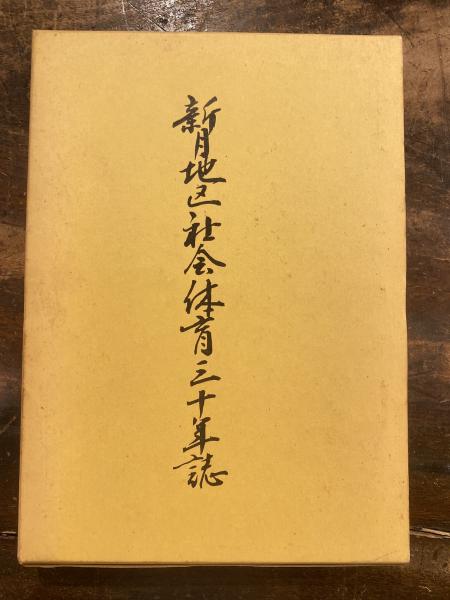 新月地区社会体育三十年誌